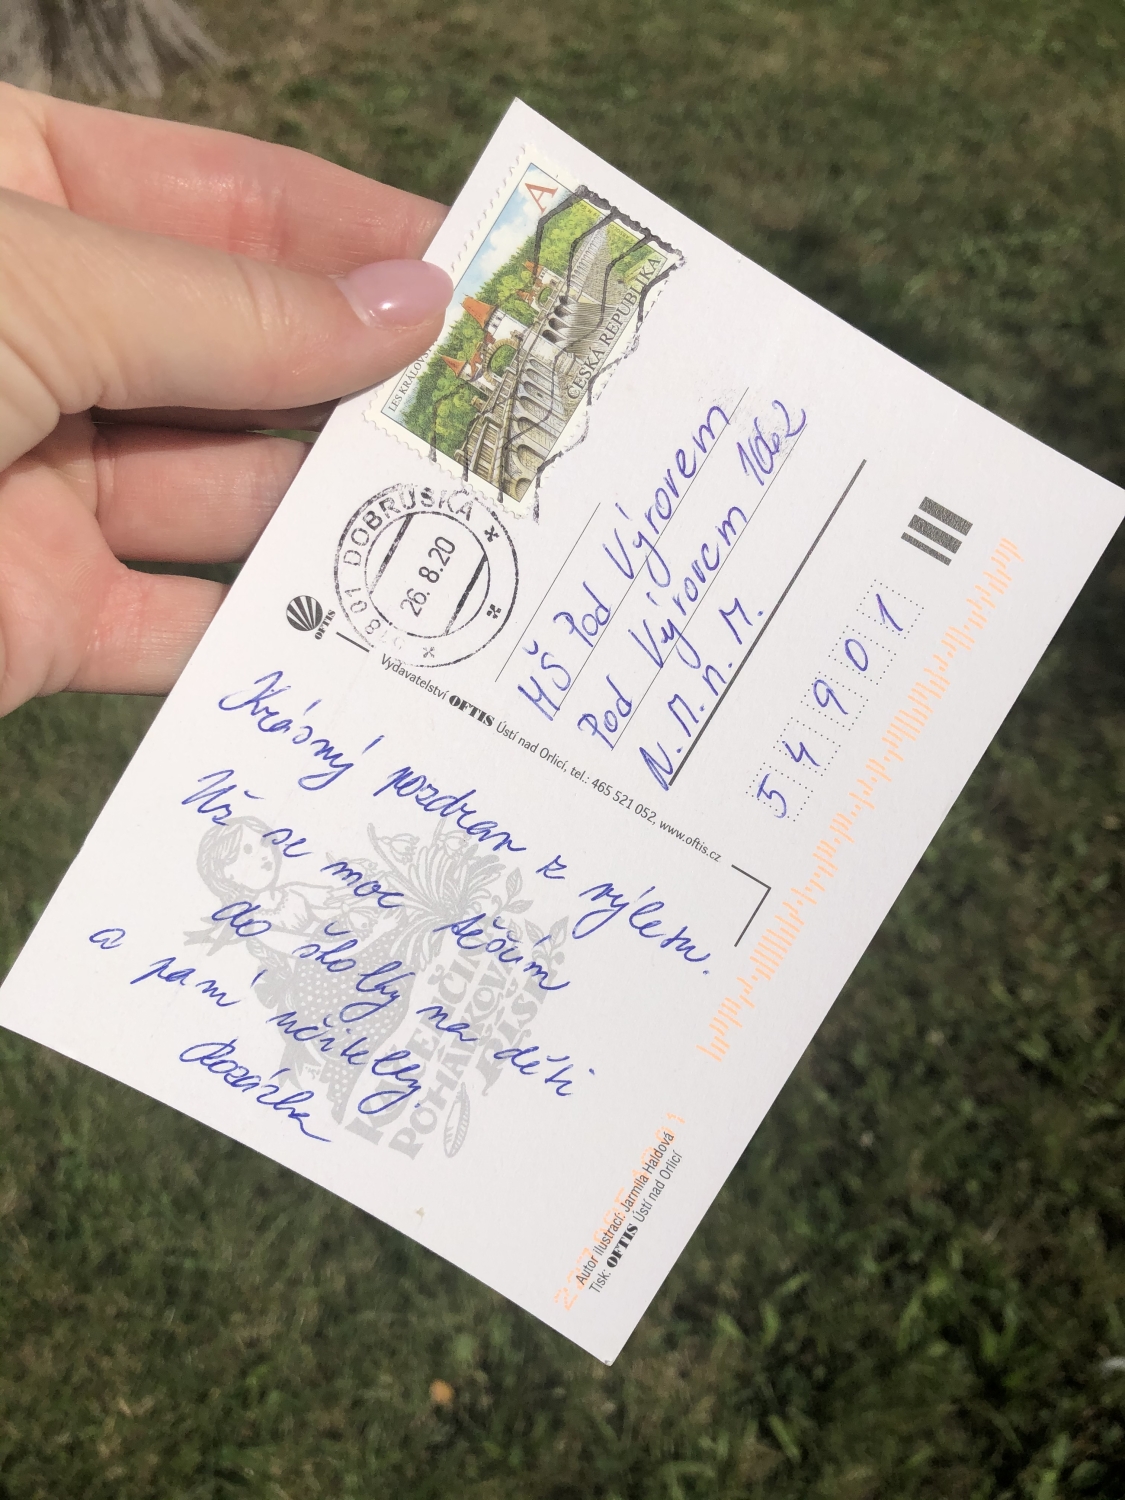 A
LES KRÁLOVS
ČESKÁ REPUBLIKA
DOBRUŠKA
518 01
26.8.20
OFTIS
Vydavatelství OFTIS Ústí nad Orlicí, tel.: 465 521 052, www.oftis.cz
MŠ Pod Výrovem
Pod Výrovem
N. M. n. M.
5 4 9 0 1
Krásný pozdrav z výletu.
Už se moc těším
do školky na děti
a paní učitelky.
Rozárka
KYTENČINO
POHÁDKOVÁ
Autor ilustrací: Jarmila Haldová
Tisk: OFTIS Ústí nad Orlicí